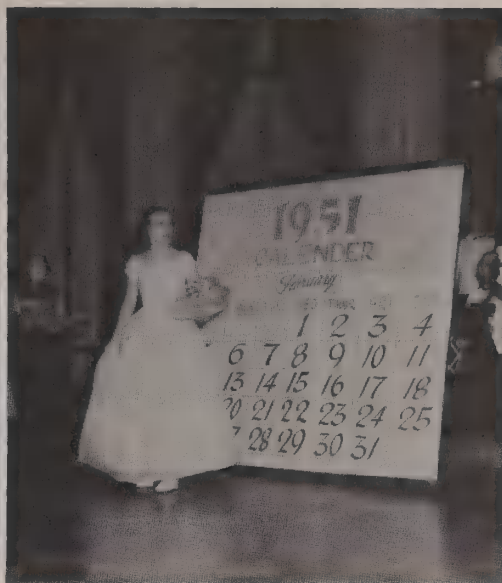 1951
CALENDER
January
1 2 3 4
6 7 8 9 10 11
13 14 15 16 17 18
20 21 22 23 24 25
7 28 29 30 31